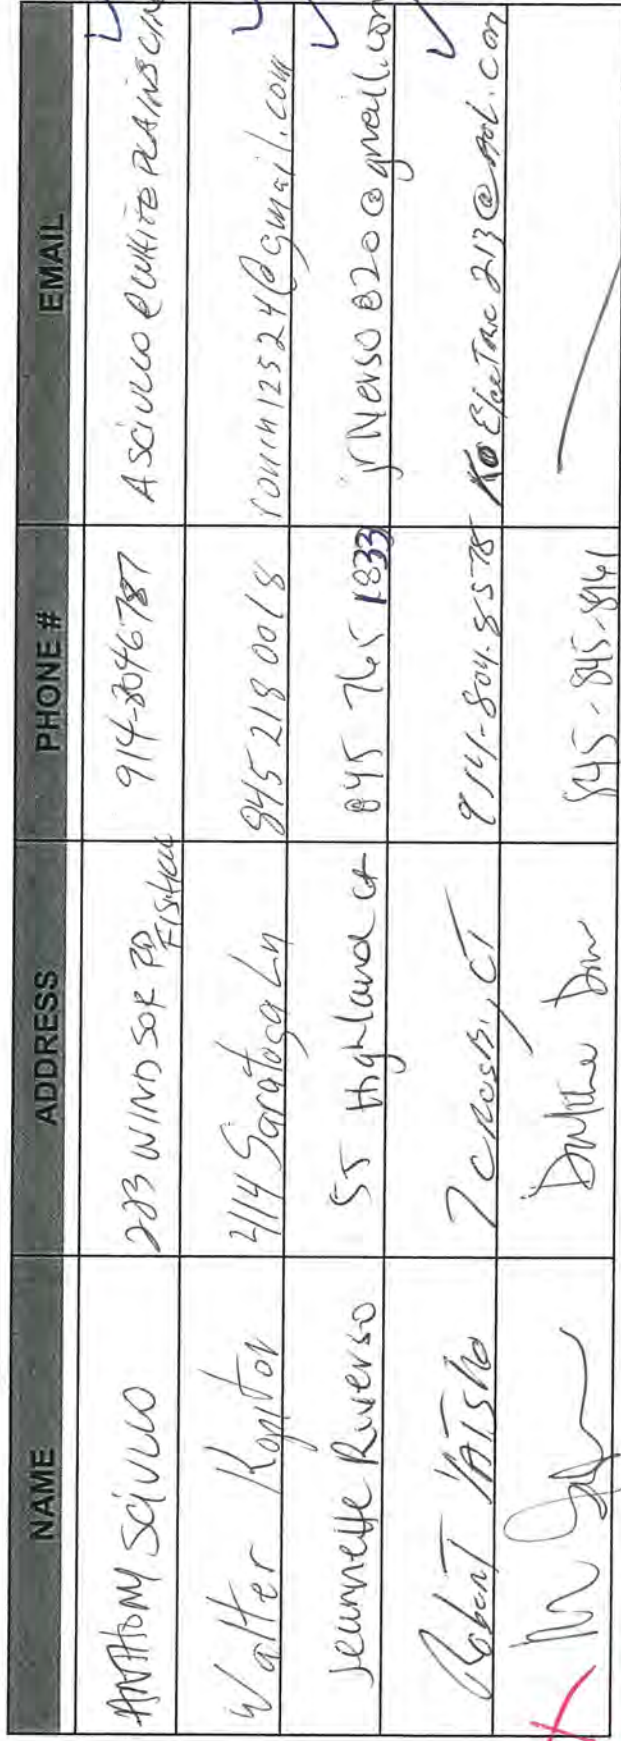 NAME ADDRESS PHONE # EMAIL
ANTHONY SCIULLO 283 WINDSOR RD FISHKILL 914-8046787 ASCIULLO@WHITEPLAINS
Walter 414 Saratoga Ln 845 218 0018 12524@gmail.com
Jeannette Riverso 55 Highland ct 845 765 1833 jriverso820@gmail.com
Robert 7 CROSBY, CT 914-804-8578 Electric213@aol.com
845-845-8161